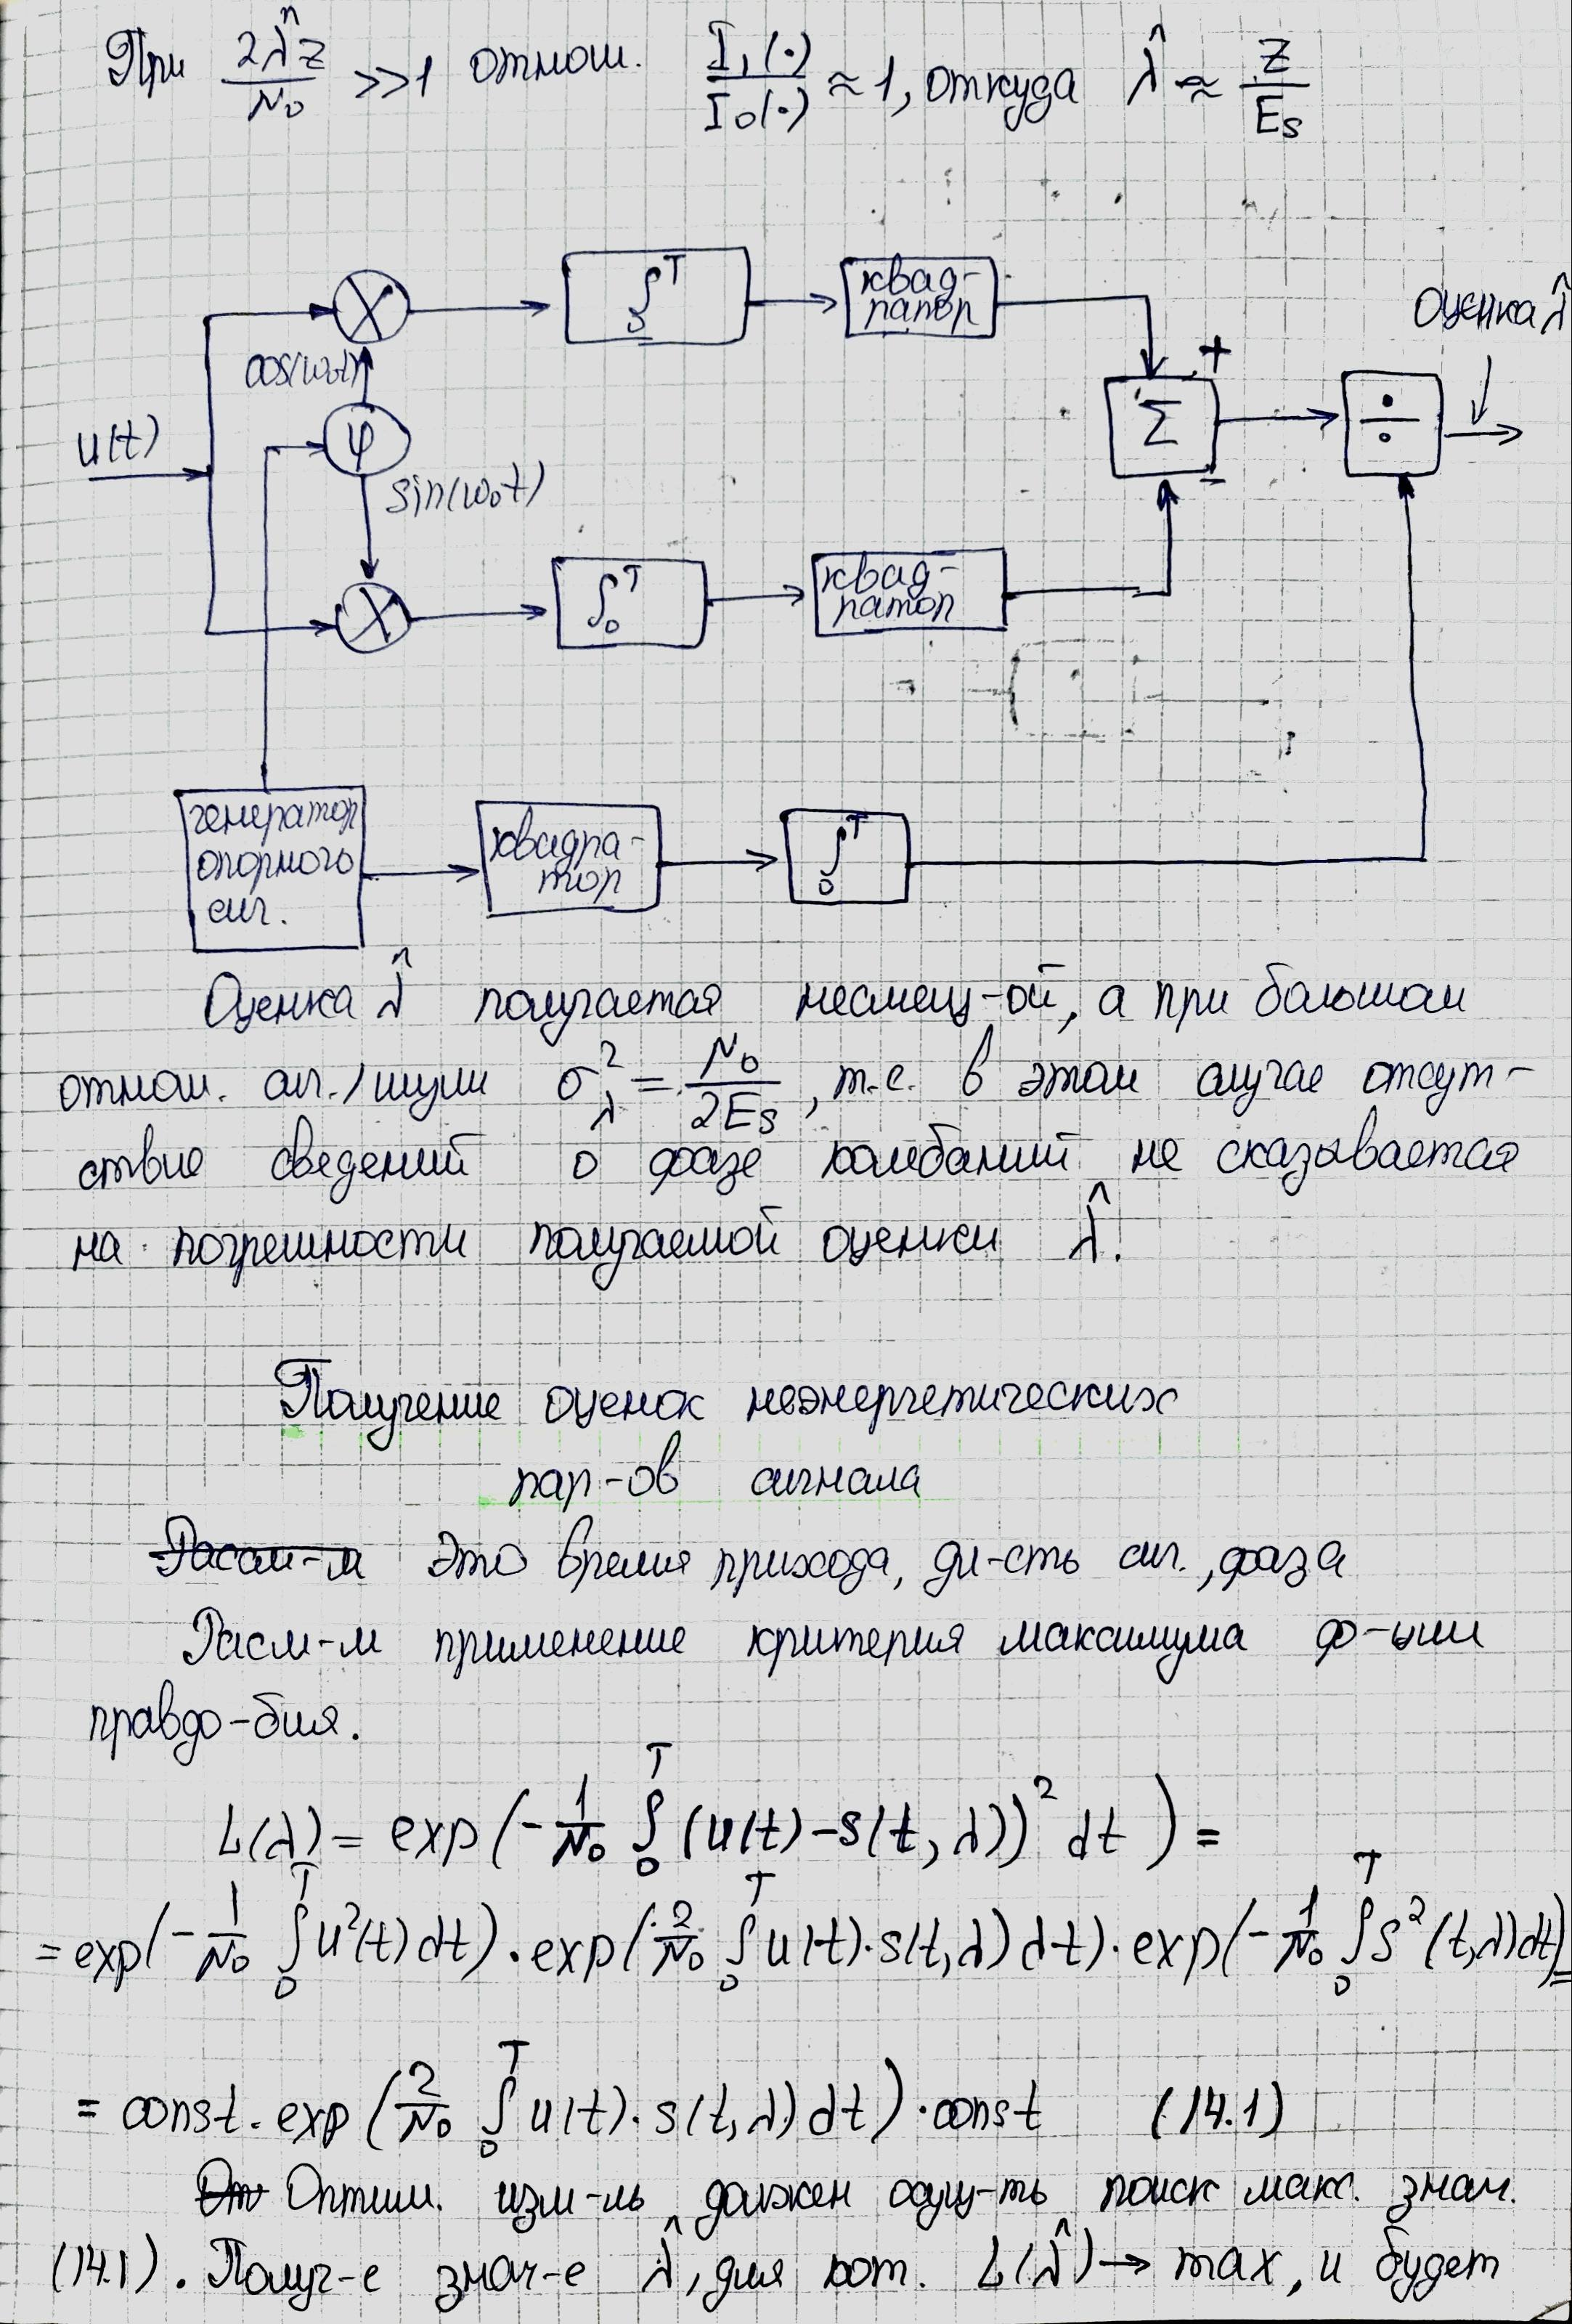 При 2λ̂z/N₀ >>1 отнош. I₁(·)/I₀(·) ≈ 1, откуда λ̂ ≈ z/Es
квад-
ратор
Оценка λ̂
∫₀ᵀ
cos(ω₀t)
+
Σ
÷
u(t)
φ
sin(ω₀t)
−
∫₀ᵀ
квад-
ратор
генератор
опорного
сиг.
квадра-
тор
∫₀ᵀ
Оценка λ̂ получается несмещ-ой, а при большом
отнош. сиг./шум σ²λ = N₀/2Es, т.е. в этом случае отсут-
ствие сведений о фазе колебаний не сказывается
на погрешности получаемой оценки λ̂.
Получение оценок неэнергетических
пар-ов сигнала
Это время прихода, дл-сть сиг., фаза
Расм-м применение критерия максимума ф-ции
правдо-бия.
L(λ) = exp(-1/N₀ ∫₀ᵀ (u(t) - s(t, λ))² dt) =
= exp(-1/N₀ ∫₀ᵀ u²(t) dt) · exp(2/N₀ ∫₀ᵀ u(t)·s(t,λ) dt) · exp(-1/N₀ ∫₀ᵀ s²(t,λ) dt) =
= const · exp(2/N₀ ∫₀ᵀ u(t)·s(t,λ) dt) · const (14.1)
Оптим. изм-ль должен осущ-ть поиск макс. знач.
(14.1). Получ-е знач-е λ̂, для кот. L(λ̂) → max, и будет